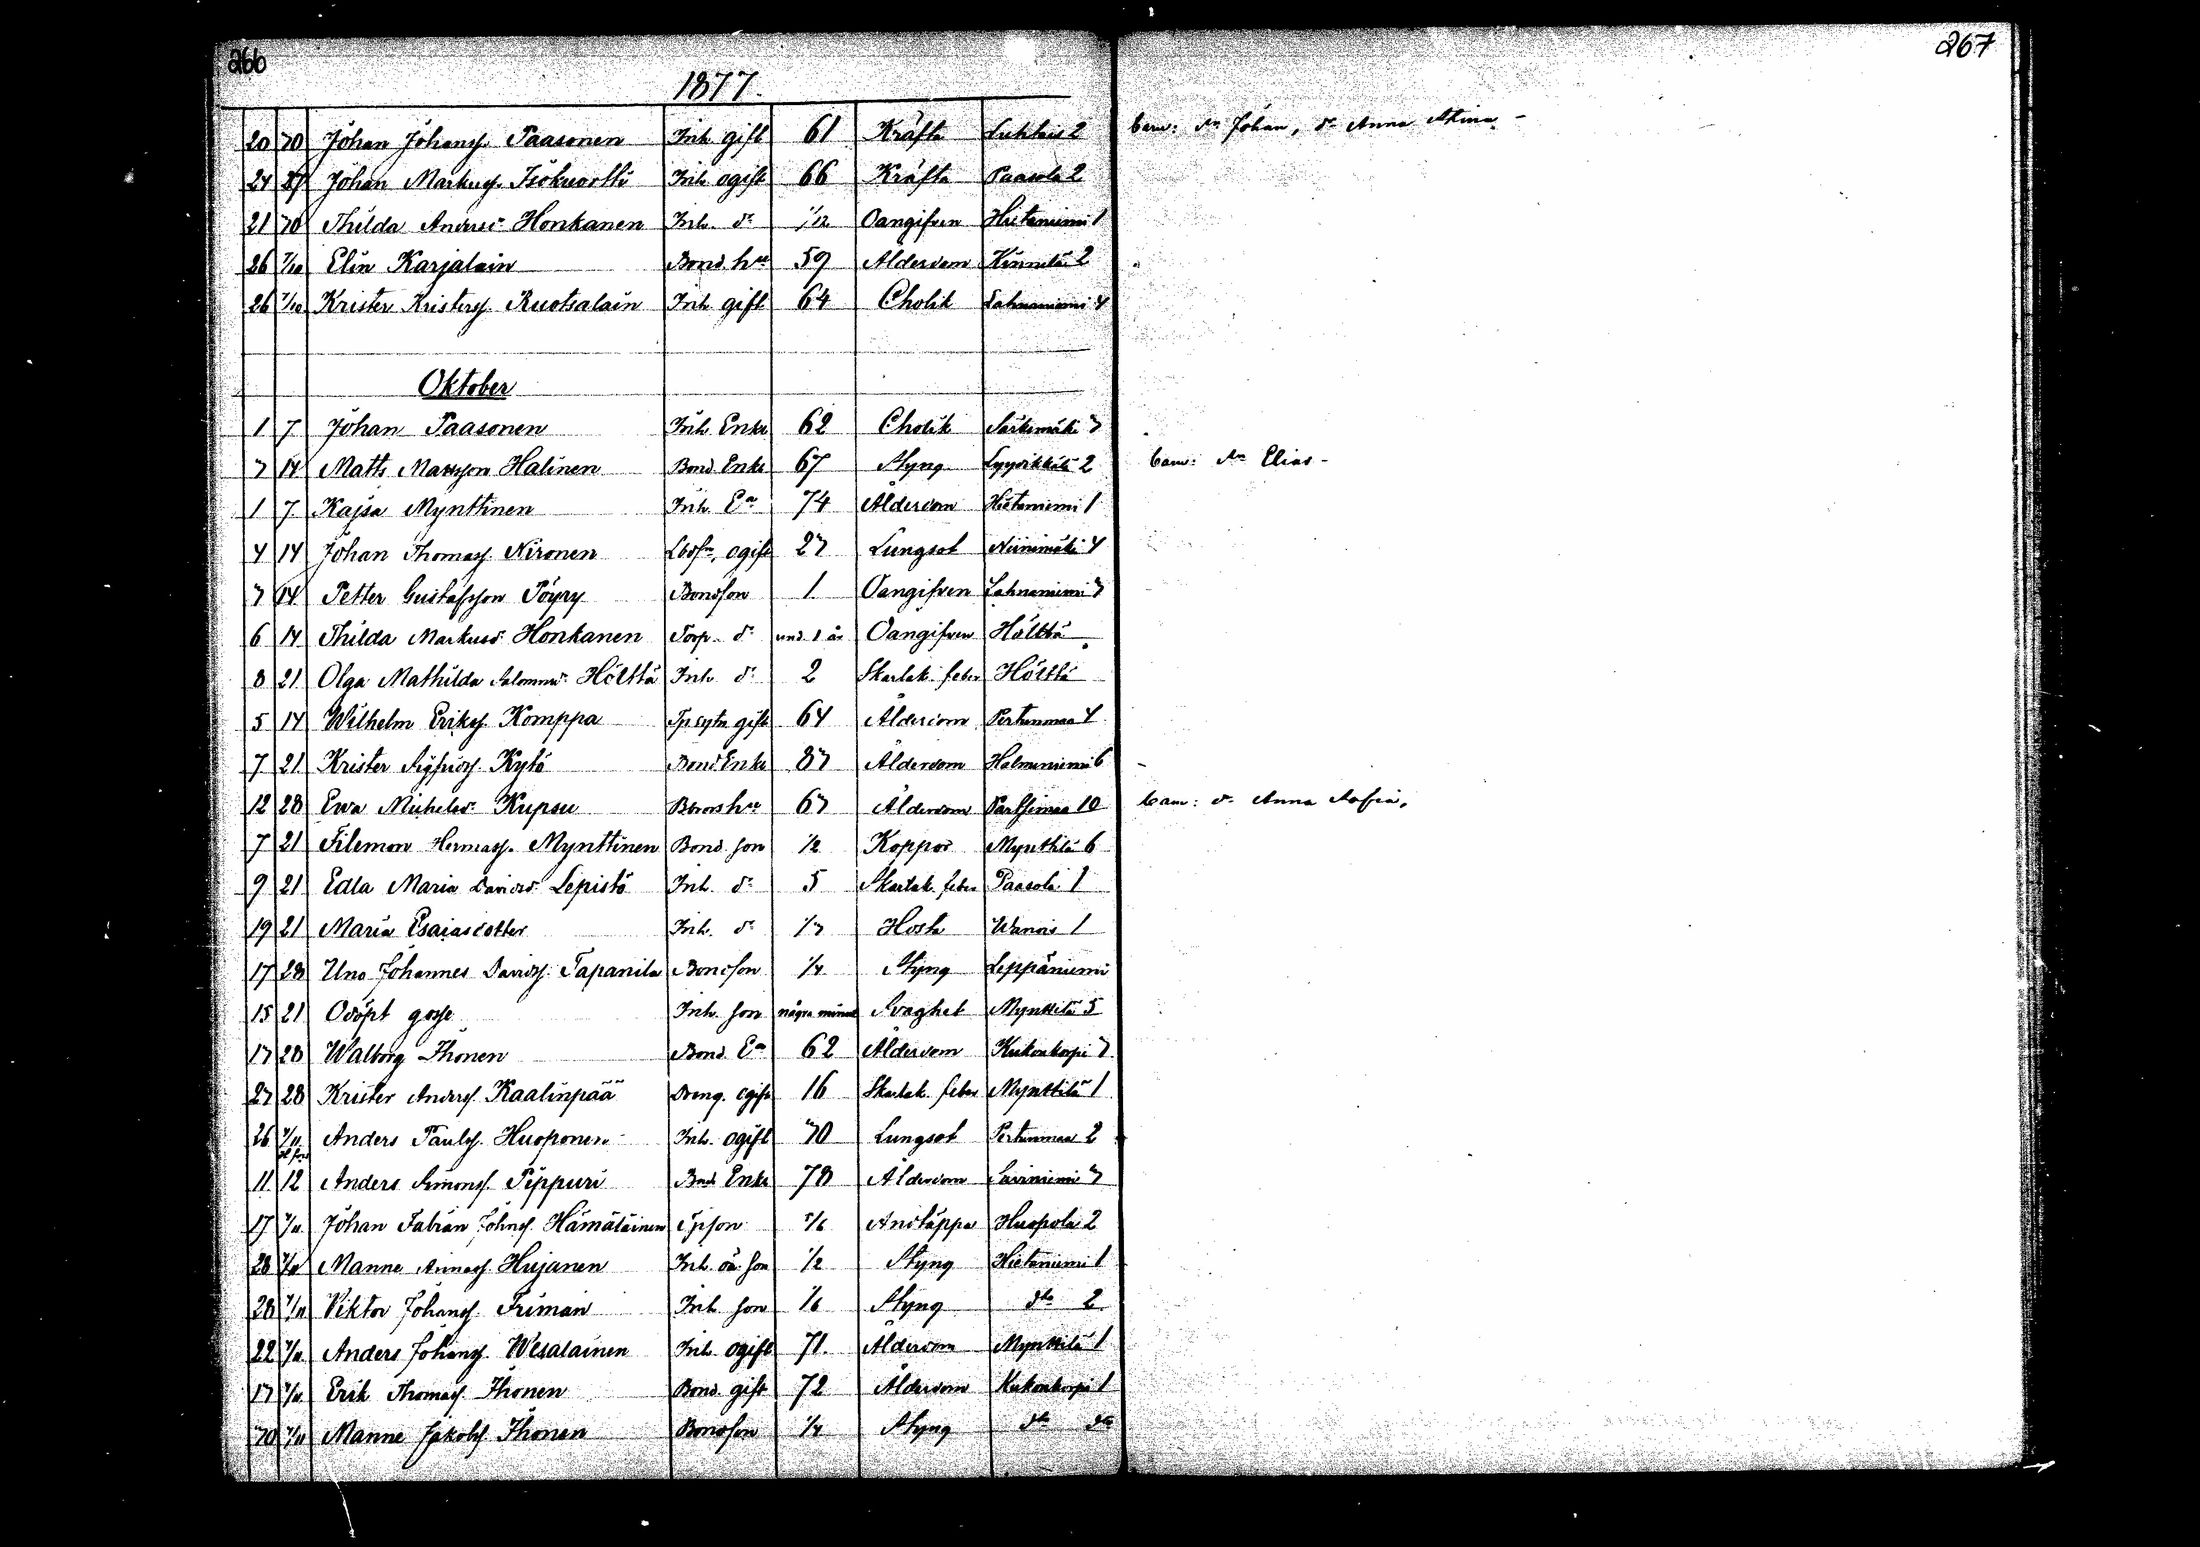 266
267
1877.
20 30 Johan Johanss. Paasonen Inh. gift 61 Kräfta Luhtais 2 barn: sn Johan, dr Anna Stina.
24 Johan Markuss. Isokuortti Inh. ogift 66 Kräfta Paasola 2
21 30 Thilda Andersdr Honkanen Inh. dr 1/12 Oangifven Hietaniemi 1
26 7/10 Elin Karjalain Bond. hu 59 Ålderdom 2
26 7/10 Krister Kristerss. Ruotsalain Inh. gift 64 Cholik Lahnaniemi 4
Oktober
1 7 Johan Paasonen Inh. Enkl 62 Cholik Särkimäki 3
7 14 Matts Mattsson Halinen Bond. Enkl 67 Styng Lyytikkälä 2 barn: sn Elias
1 7 Kajsa Mynttinen Inh. Ea 74 Ålderdom Hietaniemi 1
4 14 Johan Thomass. Nironen ogift 23 Lungsot Niinimäki 4
7 14 Petter Gustafsson Pöyry Bondson 1 Oangifven Lahnaniemi 3
6 14 Thilda Markusdr Honkanen Torp. dr und. 1 år Oangifven Hölttä
8 21 Olga Mathilda Salomonsdr Hölttä Inh. dr 2 Skarlak. feber Hölttä
5 14 Wilhelm Erikss. Komppa gift 64 Ålderdom Pertunmaa 4
7 21 Krister Sigfridss. Kytö Bond Enkl 83 Ålderdom Halmeniemi 6
12 28 Ewa Michelsdr Kupsu hu 63 Ålderdom Partsimaa 10 barn: dr Anna Sofia,
7 21 Filemon Hermass. Mynttinen Bond. son 1/2 Koppor Mynttilä 6
9 21 Edla Maria Davidsdr Lepistö Inh. dr 5 Skarlak. feber Paasola 1
19 21 Maria Esaiasdotter Inh. dr 1 3 Hosta 1
17 28 Uno Johannes Davidss. Tapanila Bondson 1/4 Styng Leppäniemi
15 21 Odöpt gosse Inh. son några minut Svaghet Mynttilä 5
17 28 Walborg Ihonen Bond. Ea 62 Ålderdom Kukonkorpi 3
27 28 Krister Anderss. Kaalinpää Dreng. ogift 16 Skarlak. feber Mynttilä 1
26 4/11 Anders Paulss. Huoponen Inh. ogift 70 Lungsot Pertunmaa 2
11 12 Anders Simonss. Pippuri Bond Enkl 78 Ålderdom Saviniemi 3
17 4/11 Johan Fabian Johanss. Hämäläinen Tpson 5/6 Andtäppa Huopola 2
28 4/11 Manne Annass. Hujanen Inh. oä. son 1/2 Styng Hietaniemi 1
28 4/11 Viktor Johanss. Friman Inh. son 1/6 Styng dto 2
22 4/11 Anders Johanss. Wesalainen Inh. ogift 71. Ålderdom Mynttilä 1
17 4/11 Erik Thomass. Ihonen Bond. gift 72 Ålderdom Kukonkorpi 1
30 4/11 Manne Jakobss. Ihonen Bondson 1/4 Styng dto dto